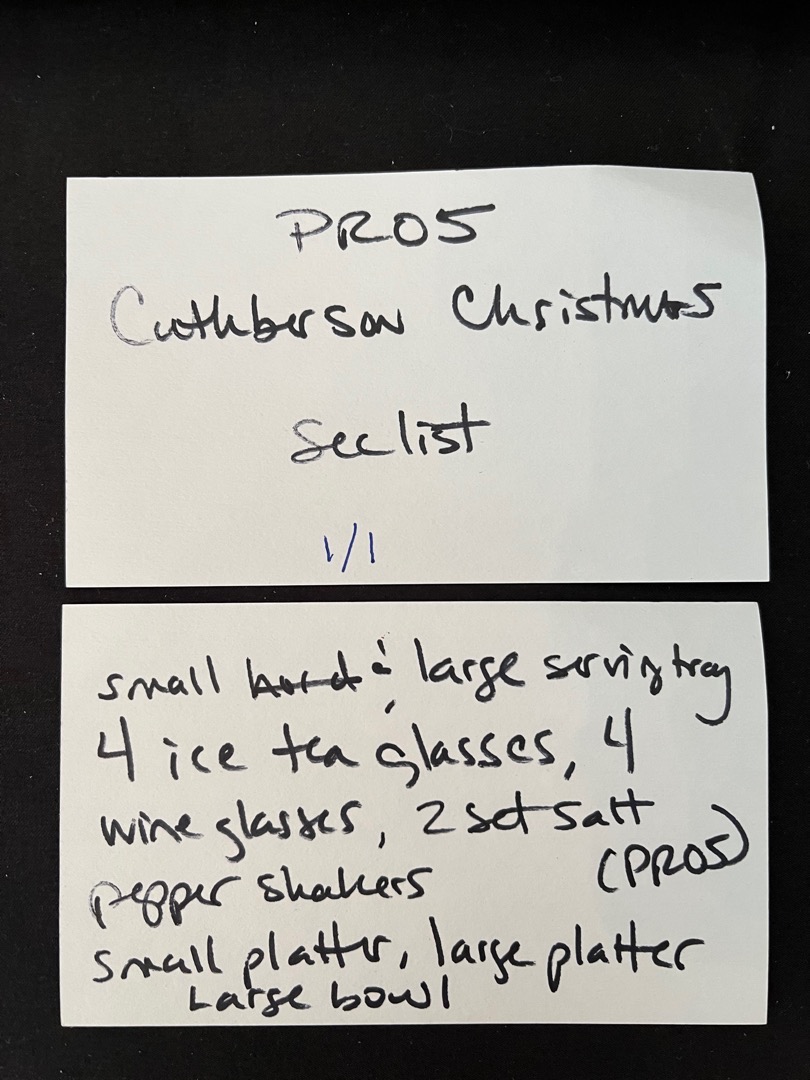 PR05
Cuthberson Christmas
See list
1/1
small & large serving tray
4 ice tea glasses, 4
wine glasses, 2 set salt
(PR05)
pepper shakers
small platter, large platter
Large bowl